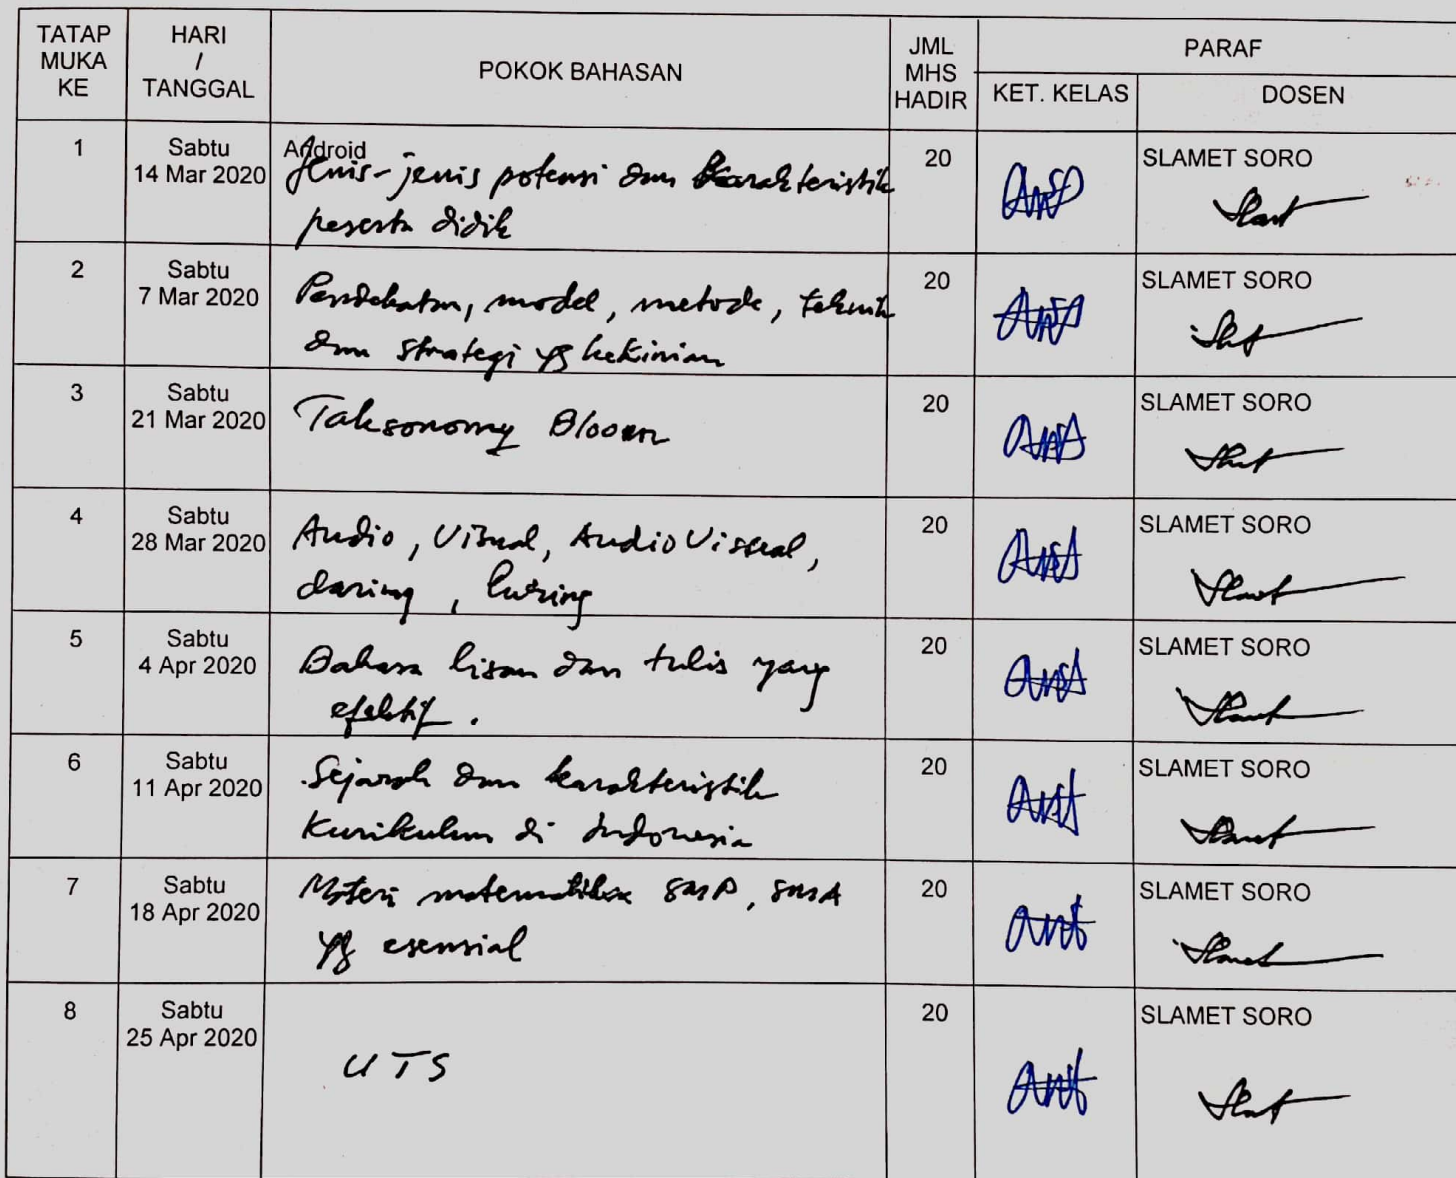 TATAP MUKA KE
HARI / TANGGAL
POKOK BAHASAN
JML MHS HADIR
PARAF
KET. KELAS
DOSEN
1
Sabtu
14 Mar 2020
Android
Jenis-jenis potensi dan karakteristik
peserta didik
20
SLAMET SORO
2
Sabtu
7 Mar 2020
Pendekatan, model, metode, teknik
dan strategi yg kekinian
20
SLAMET SORO
3
Sabtu
21 Mar 2020
Taksonomy Bloom
20
SLAMET SORO
4
Sabtu
28 Mar 2020
Audio, Visual, Audio Visual,
daring, luring
20
SLAMET SORO
5
Sabtu
4 Apr 2020
Bahasa lisan dan tulis yang
efektif.
20
SLAMET SORO
6
Sabtu
11 Apr 2020
Sejarah dan karakteristik
Kurikulum di Indonesia
20
SLAMET SORO
7
Sabtu
18 Apr 2020
Materi matematika SMP, SMA
yg esensial
20
SLAMET SORO
8
Sabtu
25 Apr 2020
UTS
20
SLAMET SORO